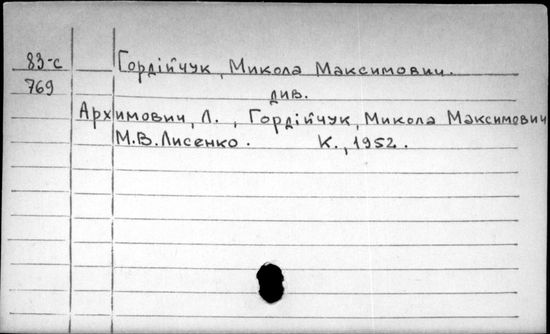 83-с Гордійчук, Микола Максимович.
769 див.
Архимович, Л., Гордійчук, Микола Максимович
М.В. Лисенко. К., 1952.